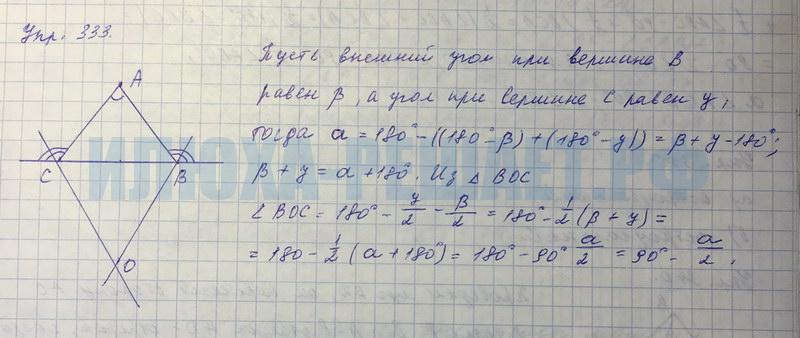 Упр. 333.
Пусть внешний угол при вершине B
равен β, а угол при вершине C равен y,
тогда a = 180° - ((180° - β) + (180° - y)) = β + y - 180°;
β + y = a + 180°. Из △ BOC
∠ BOC = 180° - y/2 - β/2 = 180° - 1/2 (β + y) =
= 180 - 1/2 (a + 180°) = 180° - 90° a/2 = 90° - a/2.
A
C
B
O